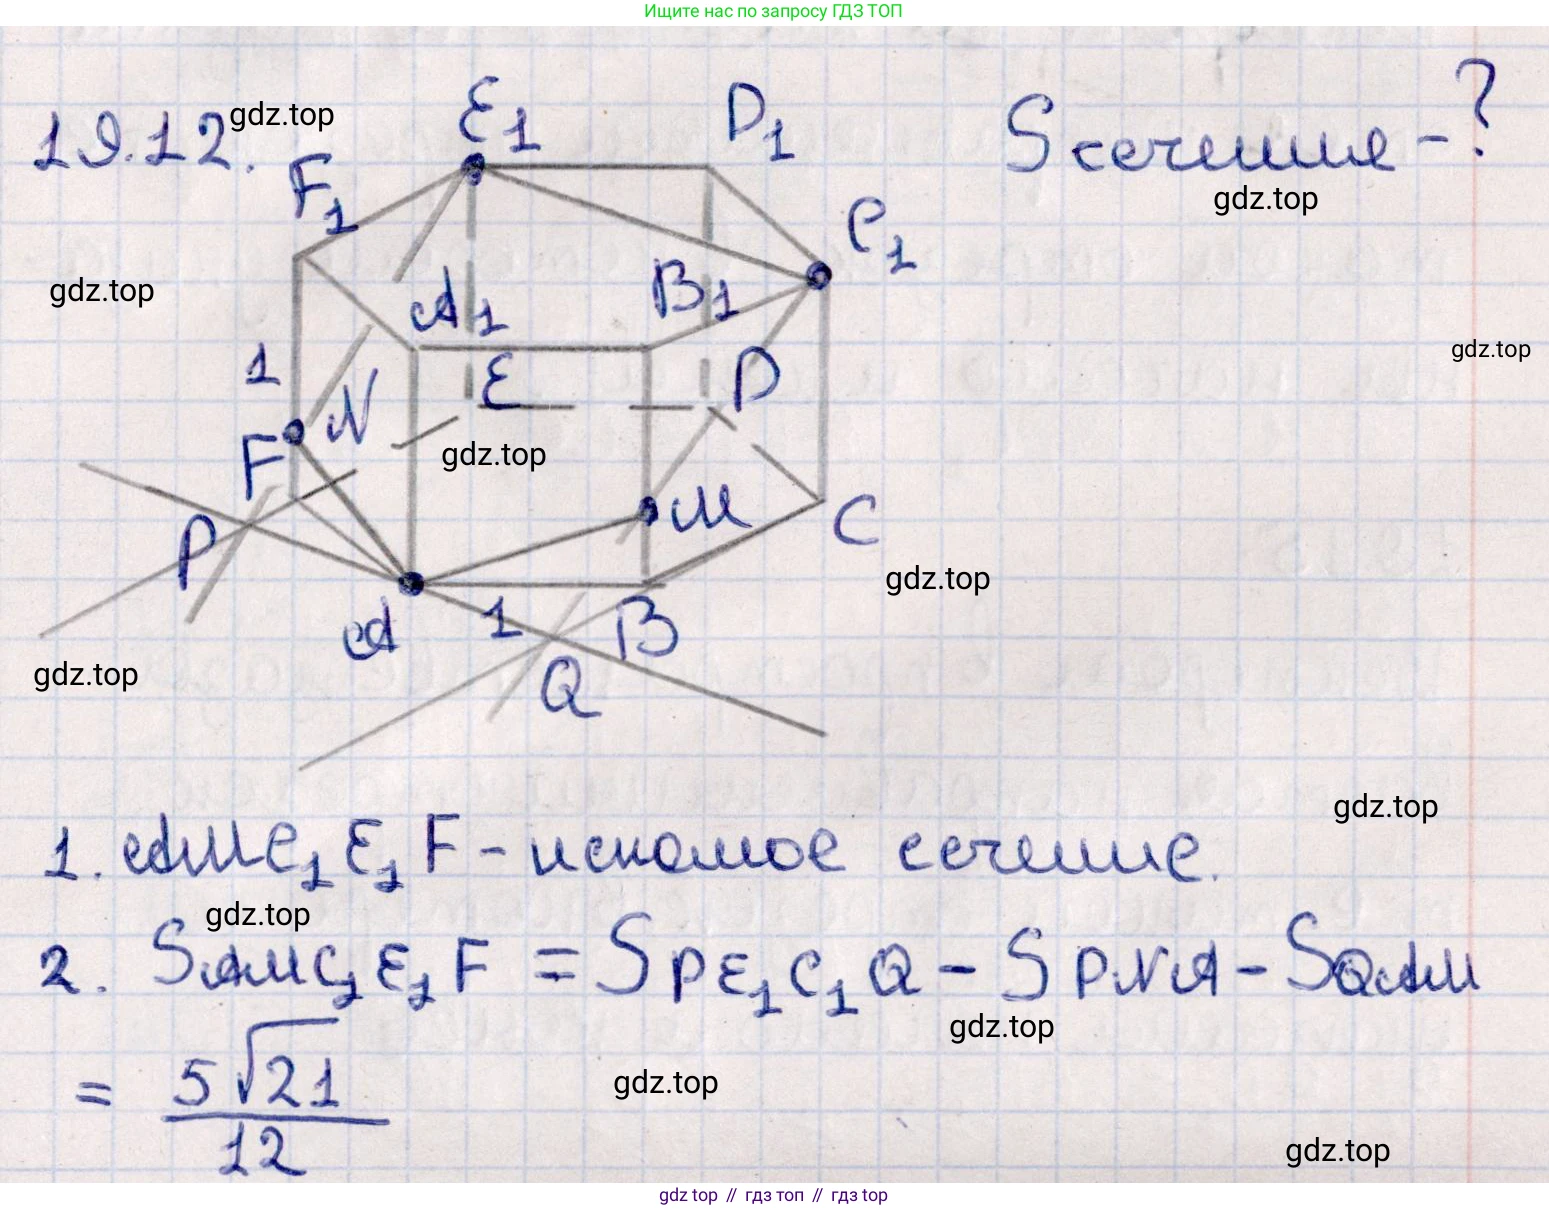 Ищите нас по запросу ГДЗ ТОП
19.12.
gdz.top
E1
D1
Sсечения-?
gdz.top
F1
C1
gdz.top
A1
B1
1
E
D
gdz.top
N
F
gdz.top
P
M
C
gdz.top
A
1
B
gdz.top
Q
gdz.top
1. AMC1E1F - искомое сечение.
gdz.top
2. SAMC1E1F = SPE1C1Q - SPNA - SQAM
gdz.top
= 5√21/12
gdz.top
gdz.top
gdz top // гдз топ // гдз top